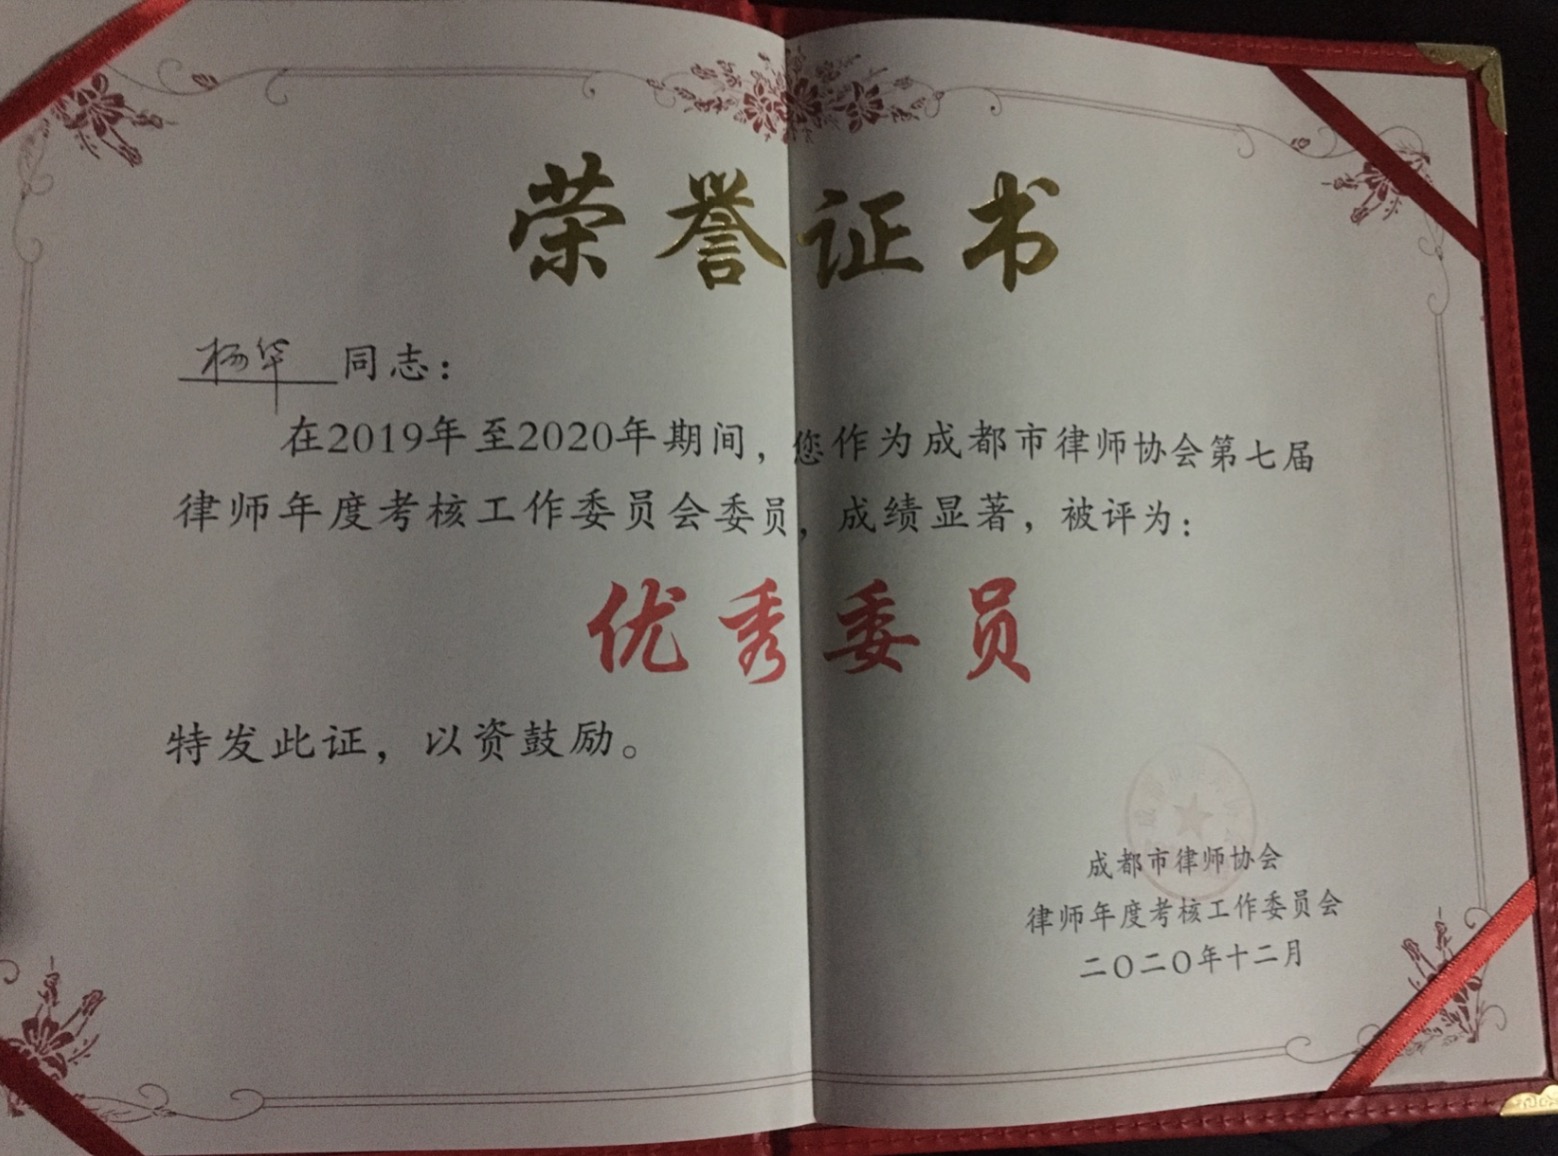 荣誉证书
杨华 同志：
在2019年至2020年期间，您作为成都市律师协会第七届
律师年度考核工作委员会委员，成绩显著，被评为：
优秀委员
特发此证，以资鼓励。
成都市律师协会
律师年度考核工作委员会
二〇二〇年十二月